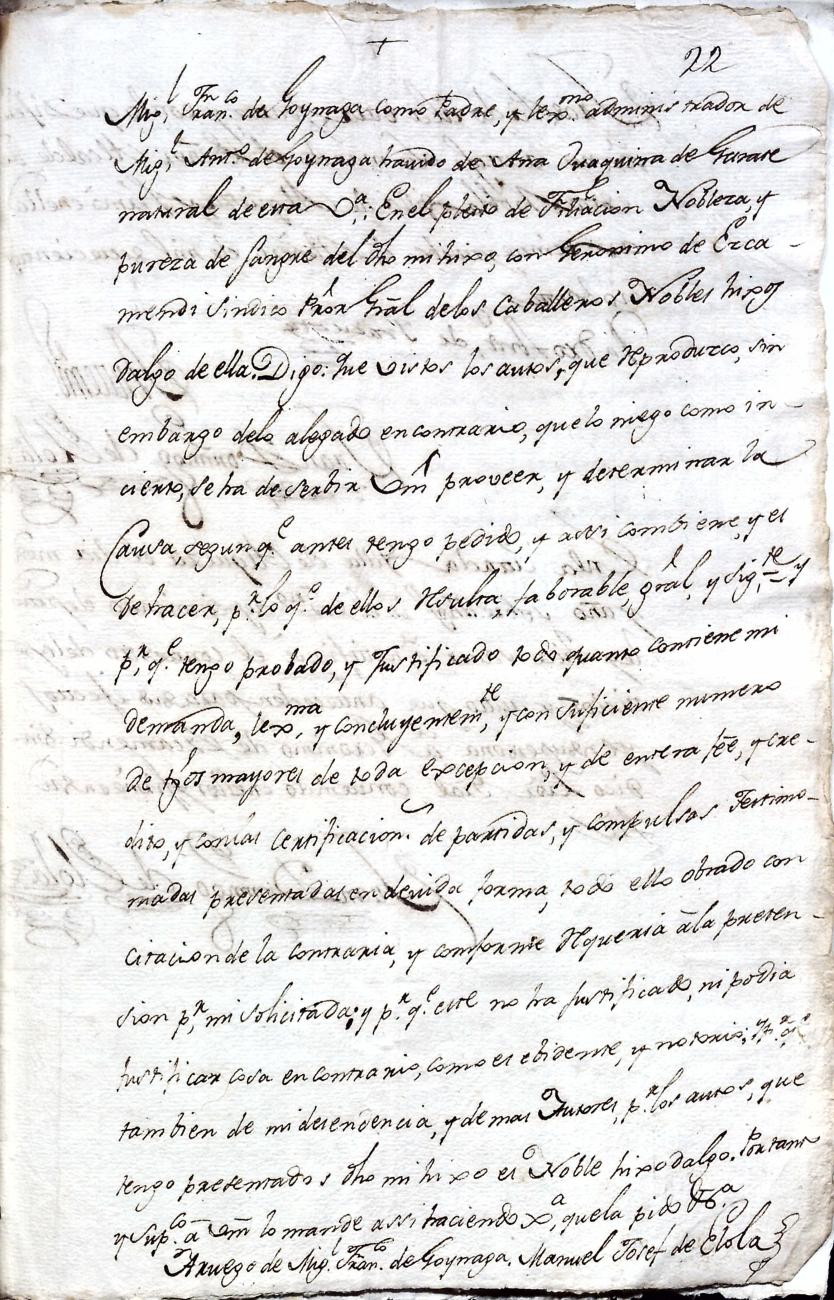 +
22
Mig.l Fran.co de Goynaga como Padre, y lex.mo administrador de
Mig.l Ant.o de Goynaga havido de Ana Juaquina de Garate
natural de esta V.a; En el pleito de Filiacion Nobleza, y
pureza de sangre del dho mi hixo, con Geronimo de Ezca-
mendi sindico Pror Gral delos Caballeros, Nobles hixos
dalgo de ella. Digo: que vistos los autos, que reproduzco, sin
embargo delo alegado en contrario, que lo niego como in-
cierto, se ha de serbir Vm proveer, y determinar la
Causa, segun q.e antes tengo pedido, y assi combiene, y es
de hacer, p.r lo q.e de ellos resulta faborable, gral, y sig.te y
p.r q.e tengo probado, y Justificado todo quanto contiene mi
demanda, lex.ma, y concluyentem.te, y con suficiente numero
de tgos mayores de toda excepcion, y de entera fee, y cre-
dito, y con las Certificacion.s de partidas, y compulsas Testimo-
niadas presentadas en devida forma, todo ello obrado con
citacion de la contraria, y comforme requeria a la preten-
sion p.r mi solicitada; y p.r q.e este no ha justificado, ni podia
justificar cosa en contrario, como es ebidente, y notorio; y p.r q.e
tambien de mi desendencia, y demas Autores, p.r los autos, que
tengo presentados dho mi hixo es Noble hixodalgo. Por tanto
y Sup.co a Vm lo mande assi haciendo x.a, que la pido &.a
Aruego de Mig.l Fran.co de Goynaga. Manuel Josef de Elola